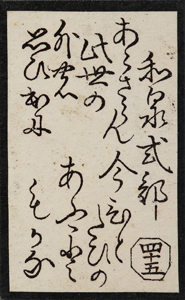 和泉式部
あらさらん
此世の
外の
思ひ出に
今ひと
たひの
あふこと
もかな
四十五